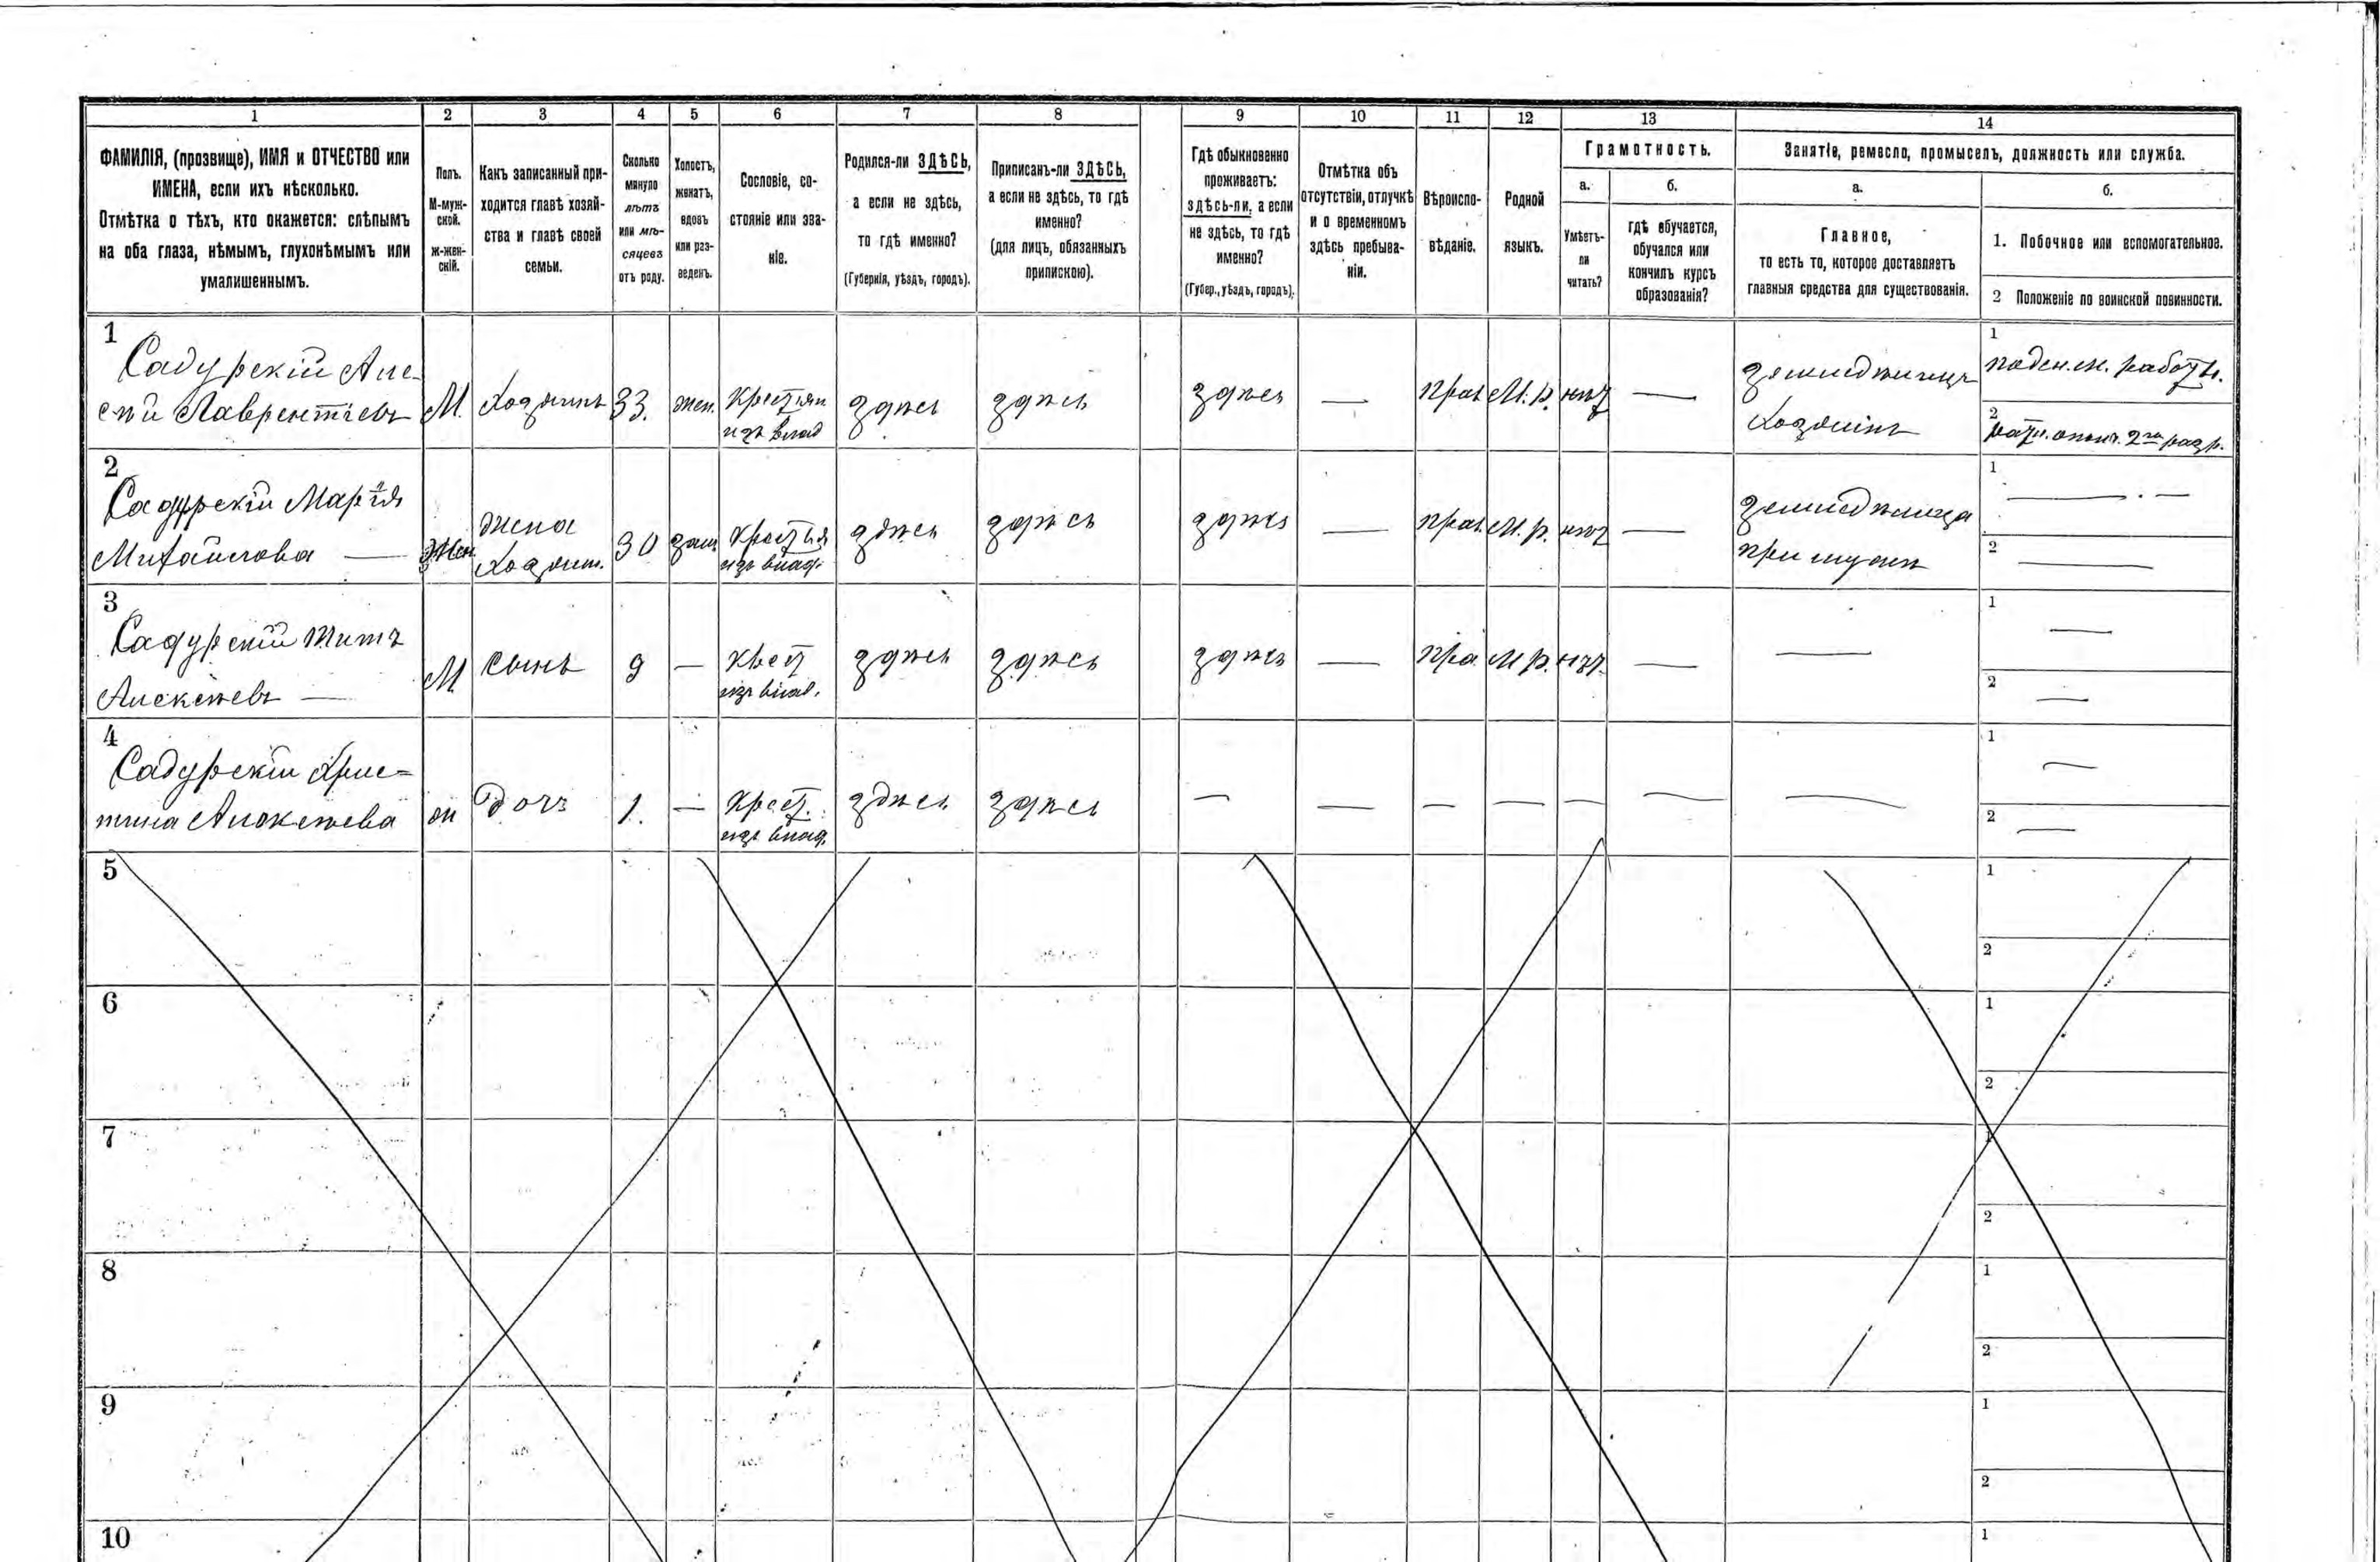 1 2 3 4 5 6 7 8 9 10 11 12 13 14
ФАМИЛІЯ, (прозвище), ИМЯ и ОТЧЕСТВО или
ИМЕНА, если ихъ нѣсколько.
Отмѣтка о тѣхъ, кто окажется: слѣпымъ
на оба глаза, нѣмымъ, глухонѣмымъ или
умалишеннымъ.
Полъ.
М-муж-
ской.
Ж-жен-
скій.
Какъ записанный при-
ходится главѣ хозяй-
ства и главѣ своей
семьи.
Сколько
минуло
лѣтъ
или мѣ-
сяцевъ
отъ роду.
Холостъ,
женатъ,
вдовъ
или раз-
веденъ.
Сословіе, со-
стояніе или зва-
ніе.
Родился-ли ЗДѢСЬ,
а если не здѣсь,
то гдѣ именно?
(Губернія, уѣздъ, городъ).
Приписанъ-ли ЗДѢСЬ,
а если не здѣсь, то гдѣ
именно?
(для лицъ, обязанныхъ
припискою).
Гдѣ обыкновенно
проживаетъ:
здѣсь-ли, а если
не здѣсь, то гдѣ
именно?
(Губер., уѣздъ, городъ).
Отмѣтка объ
отсутствіи, отлучкѣ
и о временномъ
здѣсь пребыва-
ніи.
Вѣроиспо-
вѣданіе.
Родной
языкъ.
Грамотность.
а.
Умѣетъ-
ли
читать?
б.
гдѣ обучается,
обучался или
кончилъ курсъ
образованія?
Занятіе, ремесло, промыселъ, должность или служба.
а.
Главное,
то есть то, которое доставляетъ
главныя средства для существованія.
б.
1. Побочное или вспомогательное.
2 Положеніе по воинской повинности.
1
Садурскій Але-
ксѣй Лаврентіевъ
М.
Хозяинъ
33.
жен.
Крестьян
изъ влад
здѣсь
здѣсь
здѣсь
—
прав
М. р.
нѣт
—
земледѣлецъ
Хозяинъ
1
поден. работн.
2
ратн. ополч. 2го разр.
2
Садурскій Марія
Михайлова —
Жен.
жена
Хозяин.
30
зам.
Крестья
изъ влад.
здѣсь
здѣсь
здѣсь
—
прав.
М. р.
нѣт
—
земледѣлица
при мужѣ
1
—
2
—
3
Садурскій Титъ
Алексѣевъ —
М
сынъ
9
—
Крест
изъ влад.
здѣсь
здѣсь
здѣсь
—
пра.
М р.
нѣт.
—
—
1
—
2
—
4
Садурскій Хрис=
тина Алексѣева
ж
дочь
1.
—
Крест.
изъ влад.
здѣсь
здѣсь
—
—
—
—
—
—
—
1
—
2
—
5
1
2
6
1
2
7
1
2
8
1
2
9
1
2
10
1